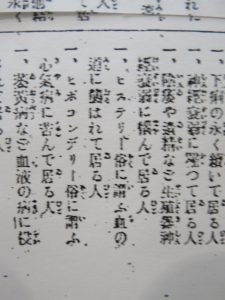 一、下痢の永く續いて居る人
一、神經衰弱に罹つて居る人
一、陰痿や遺精など生殖器神
經衰弱に惱んで居る人
一、ヒステリー俗に謂ふ血の
道に襲はれて居る人
一、ヒポコンデリー俗に謂ふ
心氣病に苦んで居る人
一、萎黄病など血液の病に侵